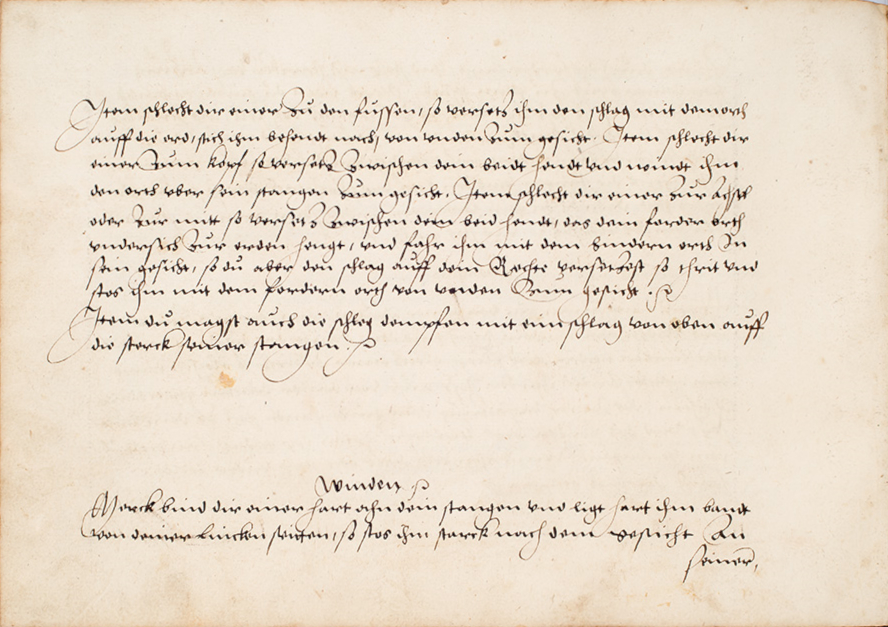 Item schlecht dir einer Zu den fussen, so versetz ihm den schlag mit dem orth
auff die erd, stich ihm behendt nach, von vnden Zum gesicht. Item schlecht dir
einer Zum kopf so versetz Zwischen dein beidt hendt vnd windt ihm
den orth vber sein stangen Zum gesicht. Item schlecht dir einer Zur achsel
oder Zur mitt so versetz Zwischen dein beid hendt, das dein forder orth
vndersich Zur erden hengt, vnd fahr ihm mit dem hindern orth In
sein gesicht, so du aber den schlag auff dein Rechte versetzest so thrit vnd
stos ihm mit dem fordern orth von vnden Zum gesicht.
Item du magst auch die schleg dempfen mit ein schlag von oben auff
die sterck seiner stangen.
Winden
Merck bind dir einer hart ahn dein stangen vnd ligt hart ihm bandt
von deiner Lincken seitten, so stos ihm starck nach dem gesicht An
seiner,